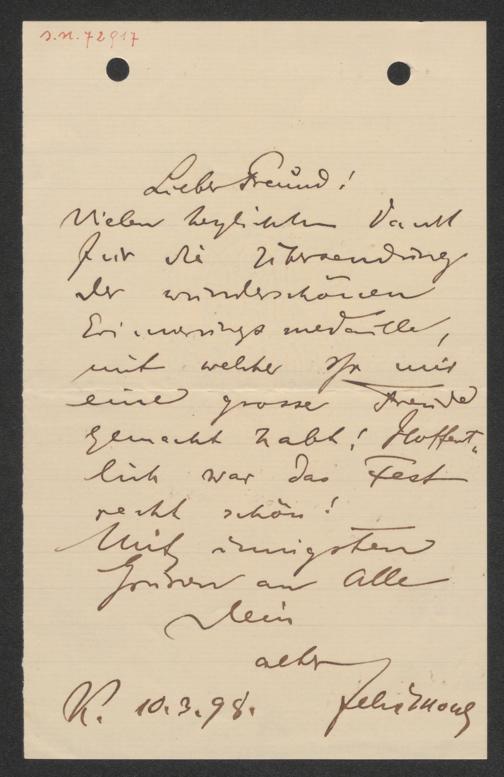 I.N. 72917
Lieber Freund!
Vielen herzlichen Dank
für die Übersendung
der wunderschönen
Erinnerungsmedaille,
mit welcher Ihr mir
eine grosse Freude
gemacht habt! Hoffent„
lich war das Fest
recht schön!
Mit innigsten
Grüssen an Alle
Dein
alter
Felix Mottl
K. 10.3.98.